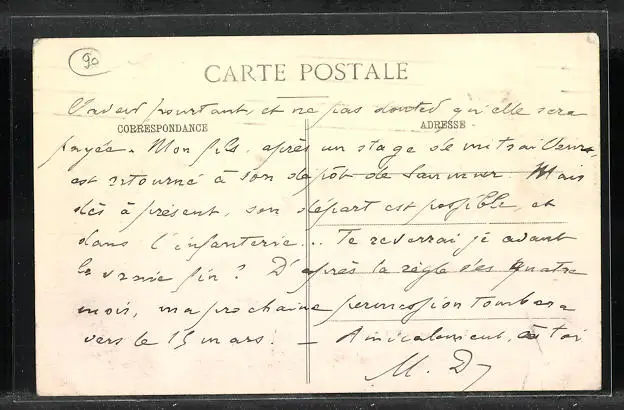 90
CARTE POSTALE
pourtant, et ne pas doutes qu'elle sera
CORRESPONDANCE
ADRESSE
payée. Mon fils, après un stage de mitrailleurs,
est retourné à son dépôt de Saumur. Mais
dès à présent, son départ est possible, et
dans l'infanterie... Te reverrai je avant
la vraie fin? D'après la règle des quatre
mois, ma prochaine permission tombera
vers le 15 mars. — Amicalement, à toi
M. D